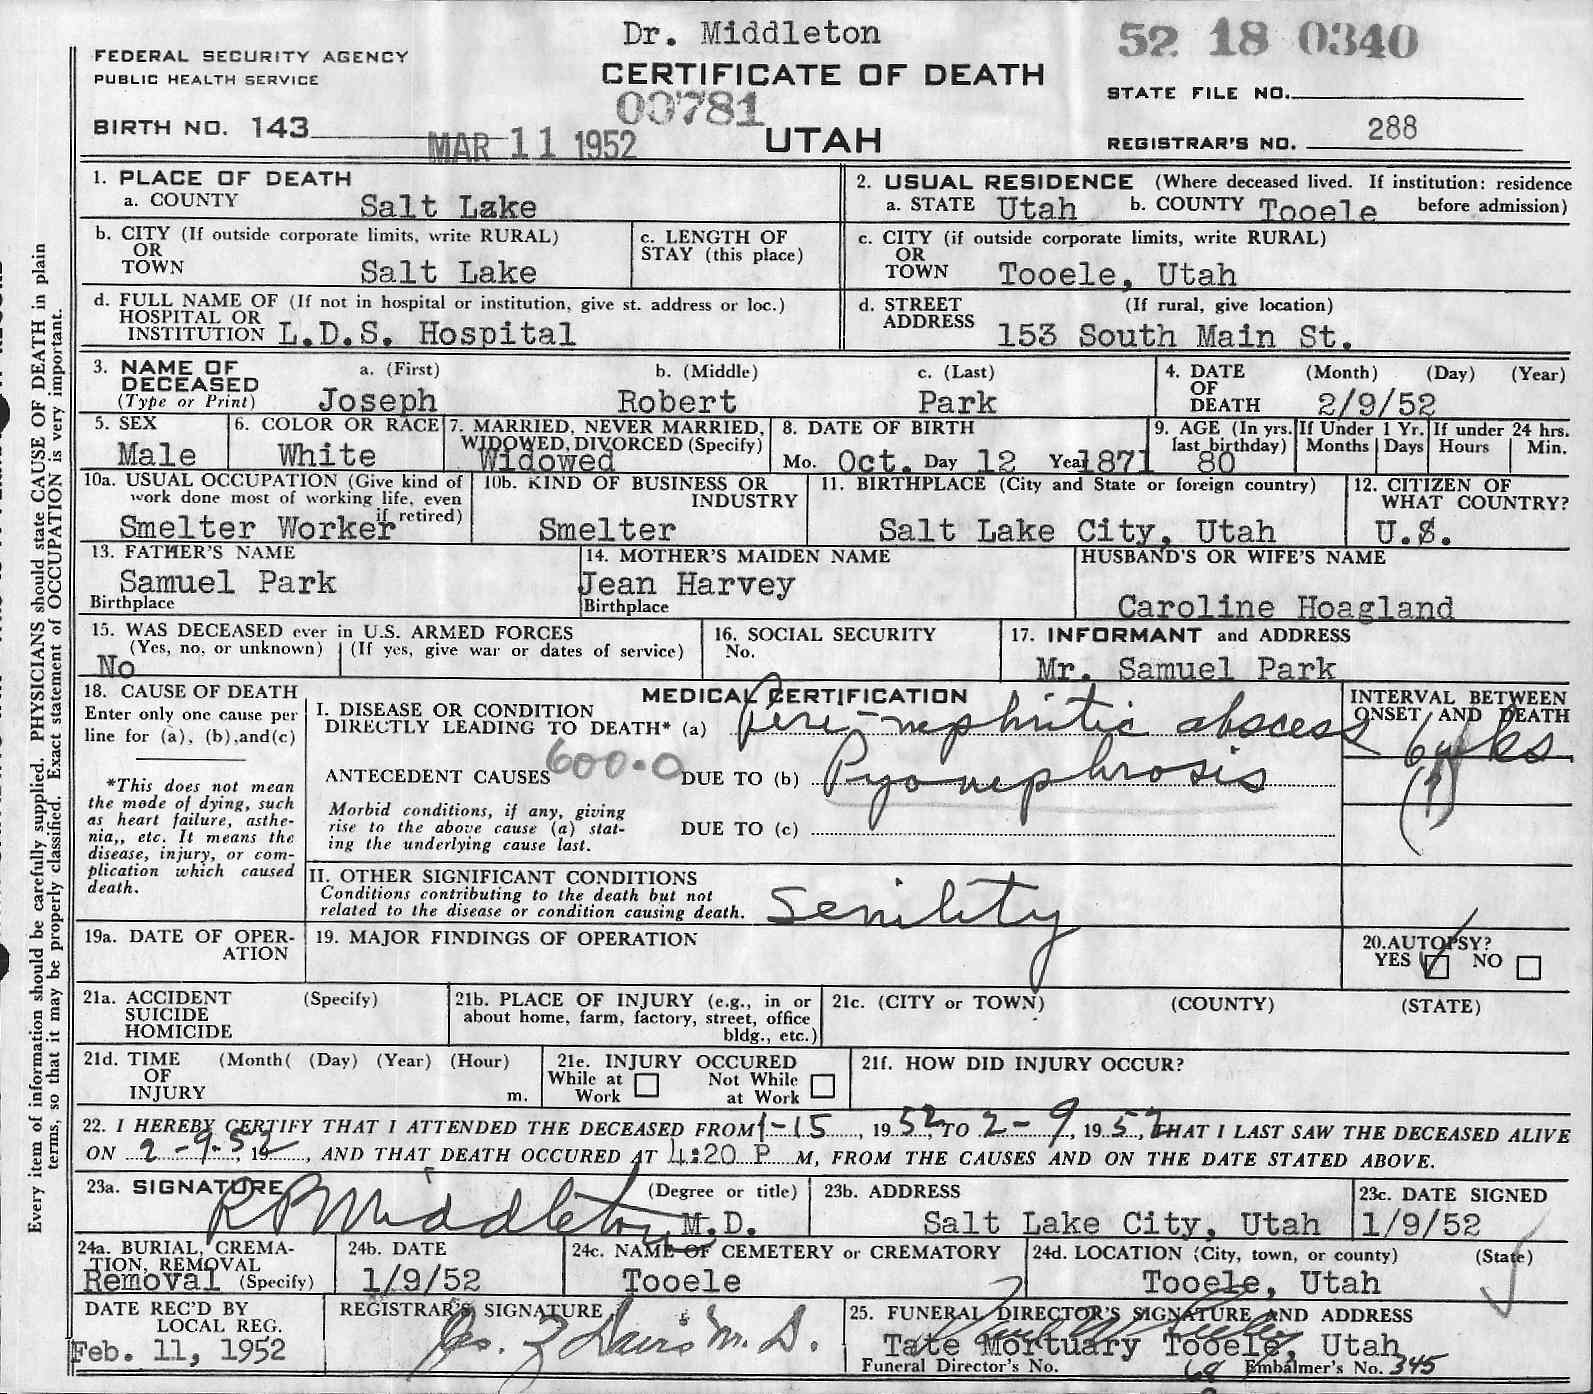 Dr. Middleton
52 18 0340
FEDERAL SECURITY AGENCY
PUBLIC HEALTH SERVICE
CERTIFICATE OF DEATH
STATE FILE NO.
03781
BIRTH NO. 143
MAR 11 1952
UTAH
REGISTRAR'S NO. 288
Every item of information should be carefully supplied. PHYSICIANS should state CAUSE OF DEATH in plain
terms, so that it may be properly classified. Exact statement of OCCUPATION is very important.
1. PLACE OF DEATH
a. COUNTY Salt Lake
2. USUAL RESIDENCE (Where deceased lived. If institution: residence
a. STATE Utah b. COUNTY Tooele before admission)
b. CITY (If outside corporate limits, write RURAL)
OR
TOWN Salt Lake
c. LENGTH OF
STAY (this place)
c. CITY (if outside corporate limits, write RURAL)
OR
TOWN Tooele, Utah
d. FULL NAME OF (If not in hospital or institution, give st. address or loc.)
HOSPITAL OR
INSTITUTION L.D.S. Hospital
d. STREET (If rural, give location)
ADDRESS 153 South Main St.
3. NAME OF a. (First) b. (Middle) c. (Last)
DECEASED
(Type or Print) Joseph Robert Park
4. DATE (Month) (Day) (Year)
OF
DEATH 2/9/52
5. SEX
Male
6. COLOR OR RACE
White
7. MARRIED, NEVER MARRIED,
WIDOWED, DIVORCED (Specify)
Widowed
8. DATE OF BIRTH
Mo. Oct. Day 12 Year 1871
9. AGE (In yrs.
last birthday)
80
If Under 1 Yr.
Months Days
If under 24 hrs.
Hours Min.
10a. USUAL OCCUPATION (Give kind of
work done most of working life, even
if retired)
Smelter Worker
10b. KIND OF BUSINESS OR
INDUSTRY
Smelter
11. BIRTHPLACE (City and State or foreign country)
Salt Lake City, Utah
12. CITIZEN OF
WHAT COUNTRY?
U.S.
13. FATHER'S NAME
Samuel Park
Birthplace
14. MOTHER'S MAIDEN NAME
Jean Harvey
Birthplace
HUSBAND'S OR WIFE'S NAME
Caroline Hoagland
15. WAS DECEASED ever in U.S. ARMED FORCES
(Yes, no, or unknown) (If yes, give war or dates of service)
No
16. SOCIAL SECURITY
No.
17. INFORMANT and ADDRESS
Mr. Samuel Park
18. CAUSE OF DEATH
Enter only one cause per
line for (a), (b),and(c)
*This does not mean
the mode of dying, such
as heart failure, asthe-
nia,, etc. It means the
disease, injury, or com-
plication which caused
death.
MEDICAL CERTIFICATION
I. DISEASE OR CONDITION
DIRECTLY LEADING TO DEATH* (a) Peri-nephritic abscess
INTERVAL BETWEEN
ONSET AND DEATH
6 wks
ANTECEDENT CAUSES 600.0 DUE TO (b) Pyonephrosis
(?)
Morbid conditions, if any, giving
rise to the above cause (a) stat-
ing the underlying cause last.
DUE TO (c)
II. OTHER SIGNIFICANT CONDITIONS
Conditions contributing to the death but not
related to the disease or condition causing death. Senility
19a. DATE OF OPER-
ATION
19. MAJOR FINDINGS OF OPERATION
20. AUTOPSY?
YES NO
21a. ACCIDENT (Specify)
SUICIDE
HOMICIDE
21b. PLACE OF INJURY (e.g., in or
about home, farm, factory, street, office
bldg., etc.)
21c. (CITY or TOWN) (COUNTY) (STATE)
21d. TIME (Month( (Day) (Year) (Hour)
OF
INJURY m.
21e. INJURY OCCURED
While at Work Not While at Work
21f. HOW DID INJURY OCCUR?
22. I HEREBY CERTIFY THAT I ATTENDED THE DECEASED FROM 1-15, 1952, TO 2-9, 1952, THAT I LAST SAW THE DECEASED ALIVE
ON 2-9-52, 19, AND THAT DEATH OCCURED AT 4:20 P M, FROM THE CAUSES AND ON THE DATE STATED ABOVE.
23a. SIGNATURE (Degree or title)
R P Middleton M.D.
23b. ADDRESS
Salt Lake City, Utah
23c. DATE SIGNED
1/9/52
24a. BURIAL, CREMA-
TION, REMOVAL
Removal (Specify)
24b. DATE
1/9/52
24c. NAME OF CEMETERY or CREMATORY
Tooele
24d. LOCATION (City, town, or county) (State)
Tooele, Utah
DATE REC'D BY
LOCAL REG.
Feb. 11, 1952
REGISTRAR'S SIGNATURE
Davis M.D.
25. FUNERAL DIRECTOR'S SIGNATURE AND ADDRESS
Tate Mortuary Tooele, Utah
Funeral Director's No. 68 Embalmer's No. 345